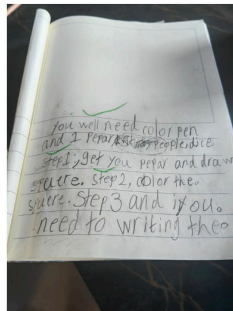 you well need color pen
and 1 pepar people dice
Step1, get you pepar and draw
squere. Step2, color the.
squere. Step3 and if you.
need to writing the